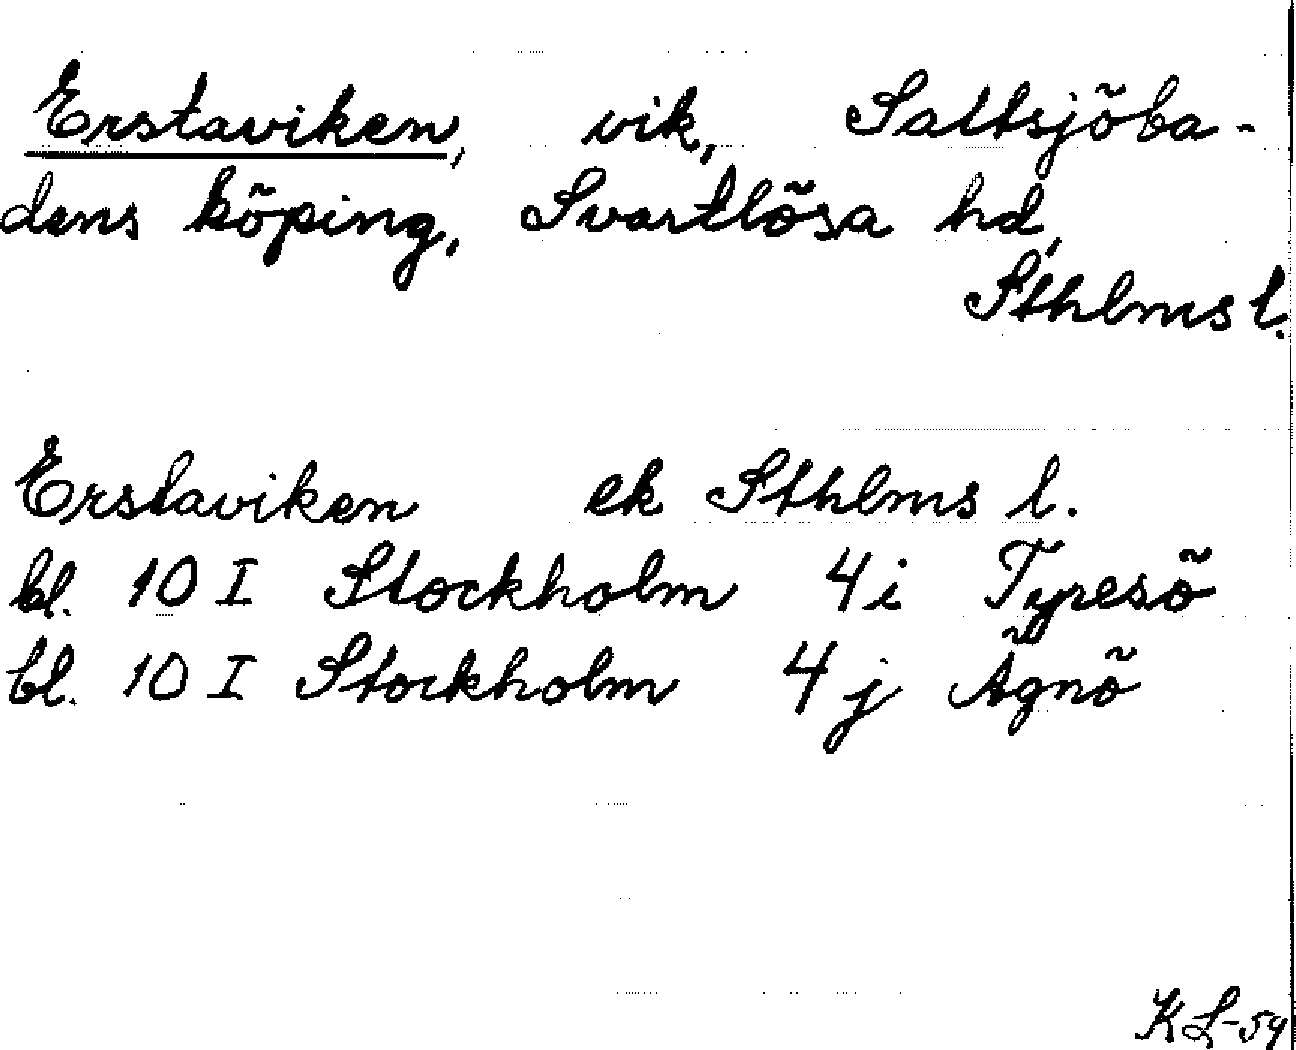 Erstaviken, vik, Saltsjöba-
dens köping, Svartlösa hd,
Sthlms l.
Erstaviken ek Sthlms l.
bl. 10 I Stockholm 4 i Tyresö
bl. 10 I Stockholm 4 j Ägnö
KL-54